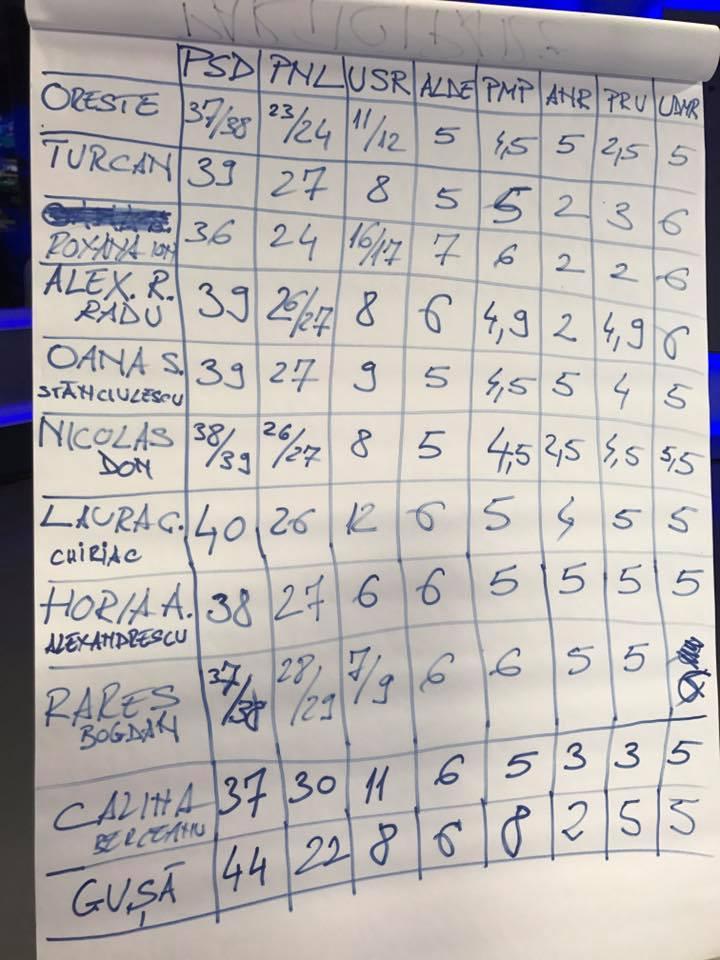 PSD PNL USR ALDE PMP ANR PRU UDMR
ORESTE 37/38 23/24 11/12 5 4,5 5 2,5 5
TURCAN 39 27 8 5 5 2 3 6
ROXANA ION 36 24 16/17 7 6 2 2 6
ALEX. R. RADU 39 26/27 8 6 4,9 2 4,9 6
OANA S. STĂNCIULESCU 39 27 9 5 4,5 5 4 5
NICOLAS DON 38/39 26/27 8 5 4,5 2,5 4,5 5,5
LAURA C. CHIRIAC 40 26 12 6 5 4 5 5
HORIA A. ALEXANDRESCU 38 27 6 6 5 5 5 5
RARES BOGDAN 37/38 28/29 7/9 6 6 5 5
CALINA BERCEANU 37 30 11 6 5 3 3 5
GUȘĂ 44 22 8 6 8 2 5 5